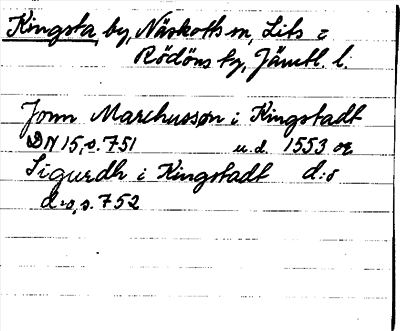 Kingsta by, Näskotts sn, Lits =
Rödöns ty, Jämtl. l.
Jonn Marchusson i Kingstadt
DN 15, s. 751 u.d. 1553 or
Sigurdh i Kingstadt d:o
d:o, s. 752